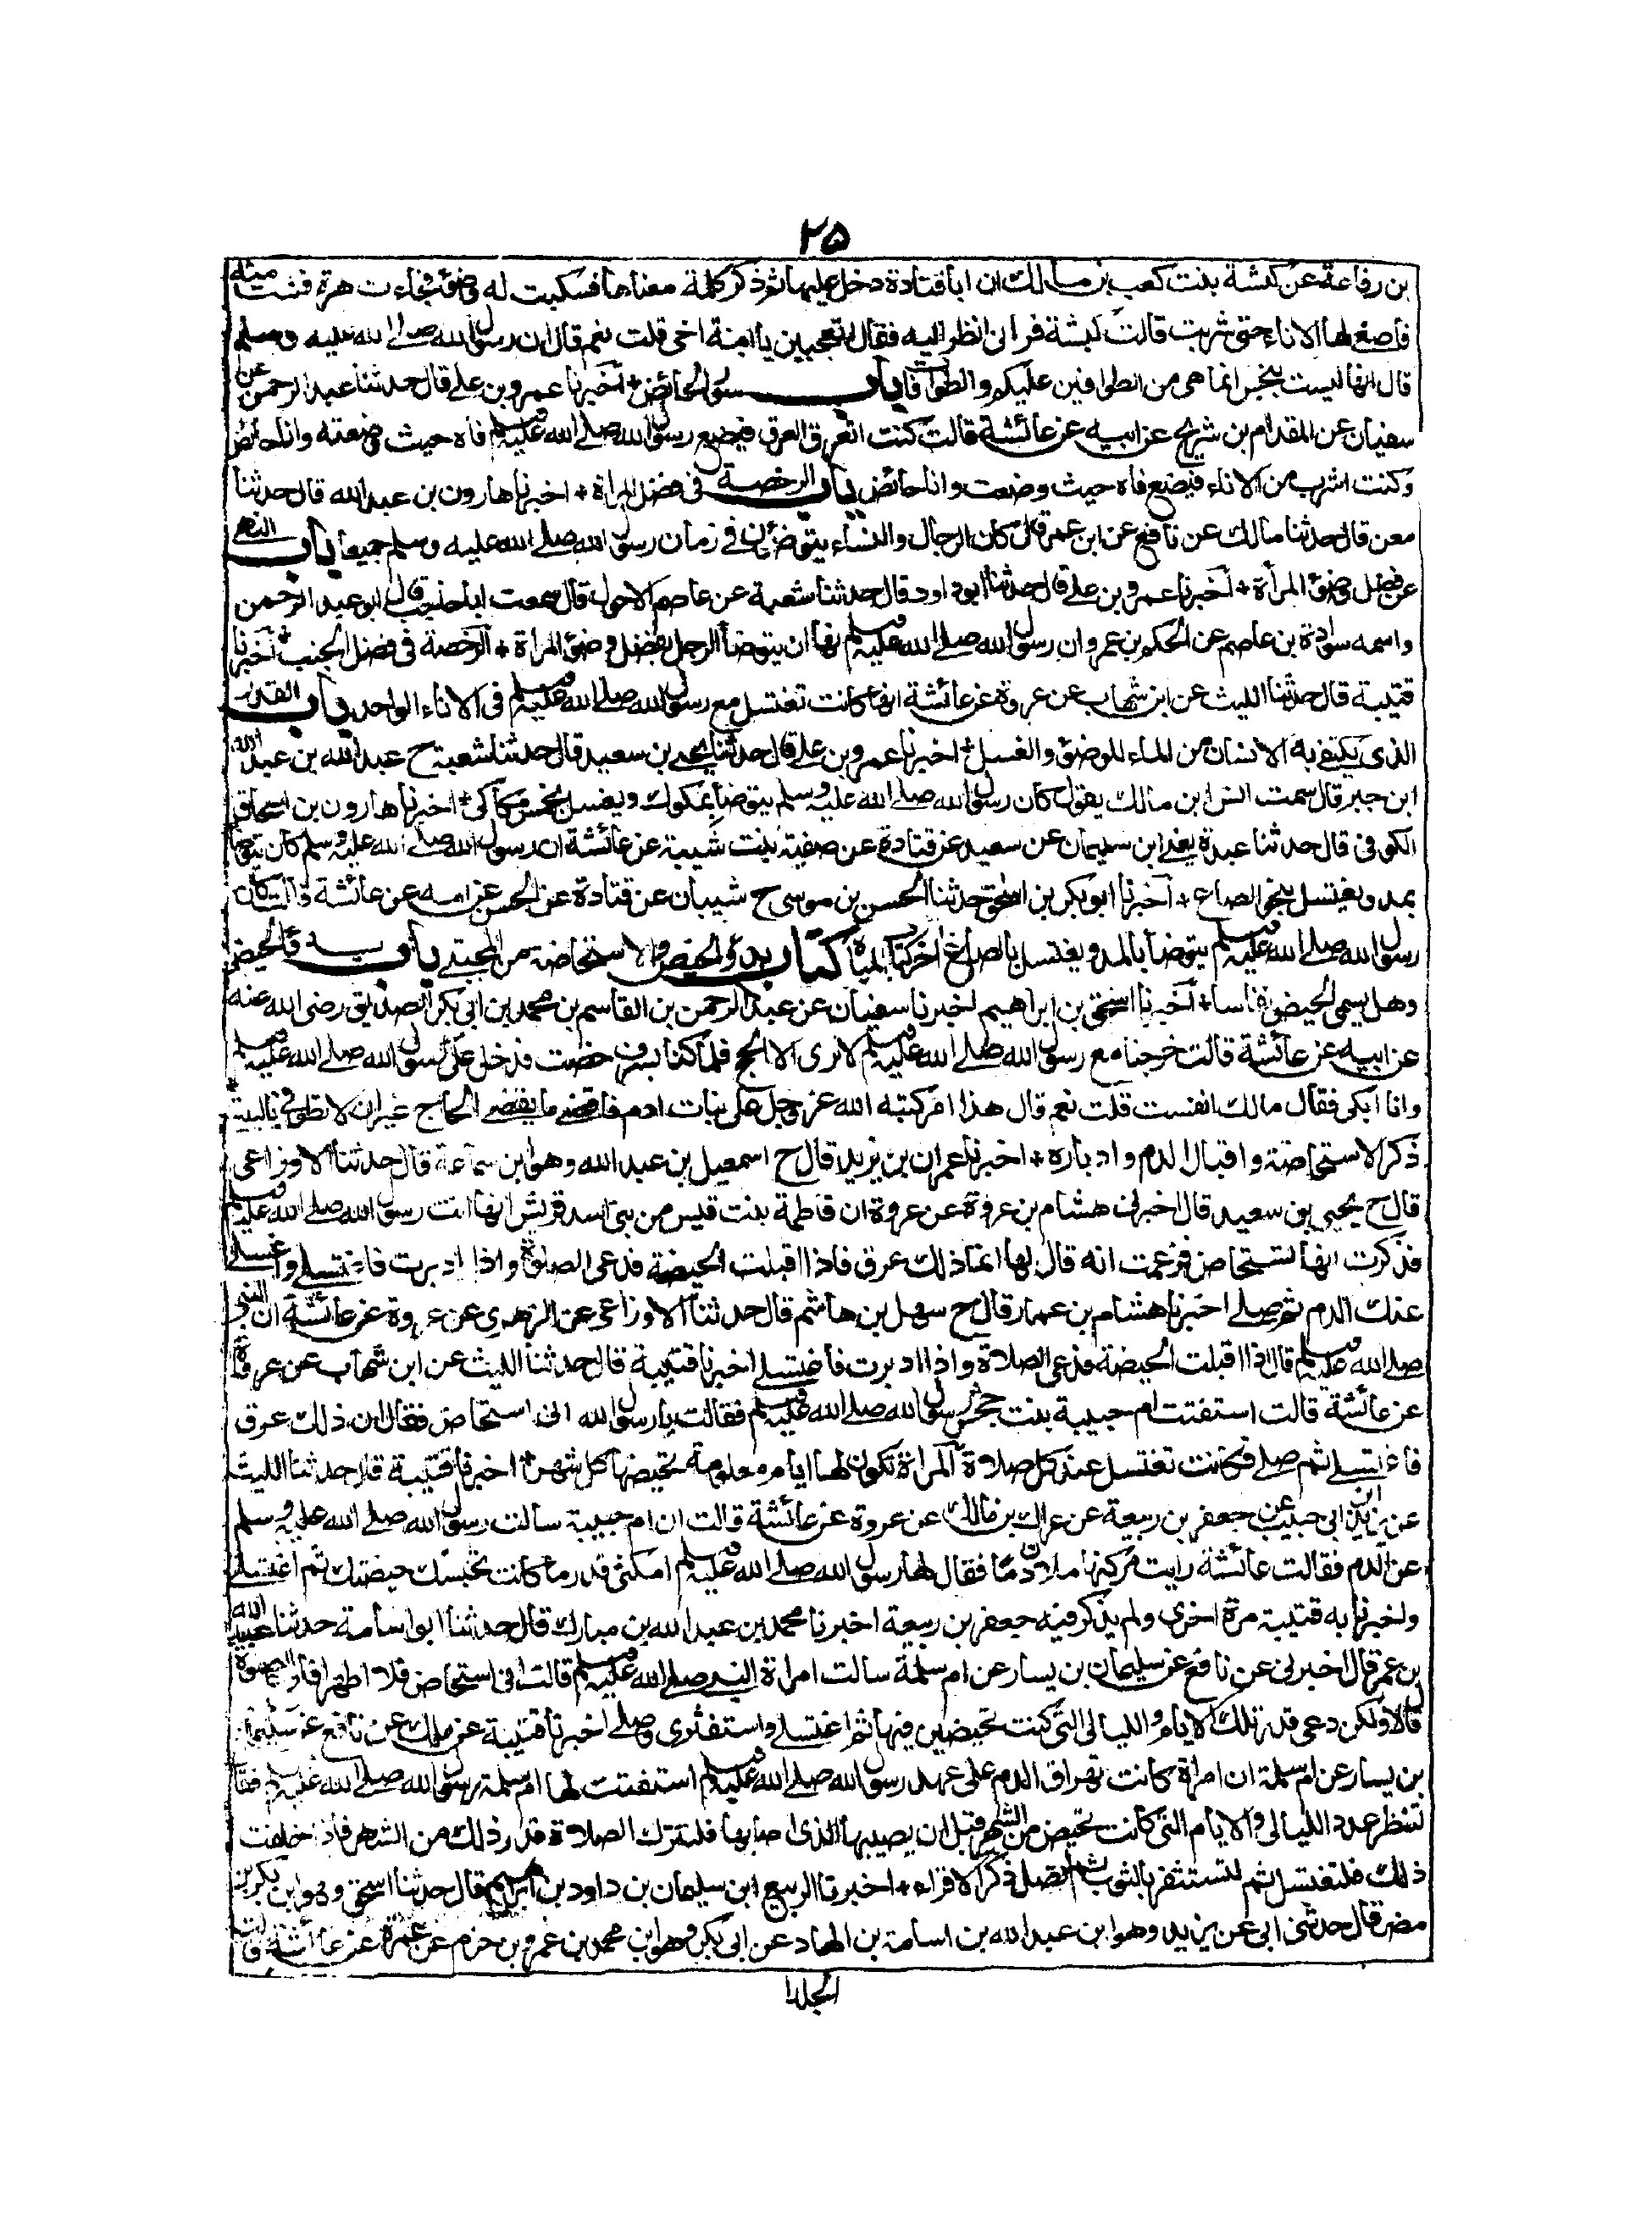 ٢٥
بن رفاعة عن كبشة بنت كعب بن مالك ان ابا قتادة دخل عليها ثم ذكر كلمة معناها فسكبت له وضوءً فجاءت هرة فشربت منه
فاصغى لها الاناء حتى شربت قالت كبشة فراني انظر اليه فقال اتعجبين يا ابنة اخي قلت نعم قال ان رسول الله صلى الله عليه وسلم
قال انها ليست بنجس انما هي من الطوافين عليكم والطوافات باب سؤر الحائض + اخبرنا عمرو بن علي قال حدثنا عبد الرحمن عن
سفيان عن المقدام بن شريح عن ابيه عن عائشة قالت كنت اتعرق العرق فيضع رسول الله صلى الله عليه وسلم فاه حيث وضعته وانا حائض
وكنت اشرب من الاناء فيضع فاه حيث وضعت وانا حائض باب الرخصة في فضل المراة + اخبرنا هارون بن عبد الله قال حدثنا
معن قال حدثنا مالك عن نافع عن ابن عمر قال كان الرجال والنساء يتوضؤن في زمان رسول الله صلى الله عليه وسلم جميعا باب النهي
عن فضل وضوء المرأة + اخبرنا عمرو بن علي قال حدثنا ابو داود قال حدثنا شعبة عن عاصم الاحول قال سمعت ابا حاجب قال ابو عبد الرحمن
واسمه سوادة بن عاصم عن الحكم بن عمرو ان رسول الله صلى الله عليه وسلم نها ان يتوضأ الرجل بفضل وضوء المراة + الرخصة في فضل الجنب + اخبرنا
قتيبة قال حدثنا الليث عن ابن شهاب عن عروة عن عائشة انها كانت تغتسل مع رسول الله صلى الله عليه وسلم في الاناء الواحد باب القدر
الذي يكتفي به الانسان من الماء للوضوء والغسل + اخبرنا عمرو بن علي قال حدثنا يحيى بن سعيد قال حدثنا شعبة ح عبد الله بن عبد الله
ابن جبر قال سمعت انس ابن مالك يقول كان رسول الله صلى الله عليه وسلم يتوضأ بمكوك ويغسل بخمس مكاكي + اخبرنا هارون بن اسحاق
الكوفي قال حدثنا عبدة يعني ابن سليمان عن سعيد عن قتادة عن صفية بنت شيبة عن عائشة ان رسول الله صلى الله عليه وسلم كان يتوضا
بمد ويغتسل بنحو الصاع + اخبرنا ابو بكر بن اسحق حدثنا الحسن بن موسى ح شيبان عن قتادة عن الحسن عن امه عن عائشة قالت كان
رسول الله صلى الله عليه وسلم يتوضا بالمد ويغتسل بالصاع اخر كتاب المياه كتاب بدؤ الحيض والاستحاضة من المجتبى باب بدؤ الحيض
وهل يسمى الحيض نفاسا + اخبرنا اسحق بن ابراهيم اخبرنا سفيان عن عبد الرحمن بن القاسم بن محمد بن ابي بكر الصديق رضي الله عنه
عن ابيه عن عائشة قالت خرجنا مع رسول الله صلى الله عليه وسلم لا نرى الا الحج فلما كنا بسرف حضت فدخل علي رسول الله صلى الله عليه وسلم
وانا ابكي فقال مالك انفست قلت نعم قال هذا امر كتبه الله عز وجل على بنات ادم فاقضي ما يقضي الحاج غير ان لا تطوفي بالبيت
ذكر الاستحاضة واقبال الدم وادباره + اخبرنا عمران بن يزيد قال ح اسمعيل بن عبد الله وهو ابن سماعة قال حدثنا الاوزاعي
قال ح يحيى بن سعيد قال اخبرني هشام بن عروة عن عروة ان فاطمة بنت قيس من بني اسد قريش انها اتت رسول الله صلى الله عليه وسلم
فذكرت انها تستحاض فزعمت انه قال لها انما ذلك عرق فاذا اقبلت الحيضة فدعى الصلوة واذا ادبرت فاغتسلي واغسلي
عنك الدم ثم صلي اخبرنا هشام بن عمار قال ح سهل بن هاشم قال حدثنا الاوزاعي عن الزهري عن عروة عن عائشة ان النبي
صلى الله عليه وسلم قال اذا اقبلت الحيضة فدعى الصلاة واذا ادبرت فاغتسلي اخبرنا قتيبة قال حدثنا الليث عن ابن شهاب عن عروة
عن عائشة قالت استفتت ام حبيبة بنت جحش رسول الله صلى الله عليه وسلم فقالت يا رسول الله اني استحاض فقال ان ذلك عرق
فاغتسلي ثم صلي فكانت تغتسل عند كل صلاة المراة تكون لها ايام معلومة تحيضها كل شهر + اخبرنا قتيبة قال حدثنا الليث
عن يزيد ابن ابي حبيب عن جعفر بن ربيعة عن عراك بن مالك عن عروة عن عائشة قالت ان ام حبيبة سالت رسول الله صلى الله عليه وسلم
عن الدم فقالت عائشة رايت مركنها ملان دما فقال لها رسول الله صلى الله عليه وسلم امكثي قدر ما كانت تحبسك حيضتك ثم اغتسلي
واخبرنا به قتيبة مرة اخرى ولم يذكر فيه جعفر بن ربيعة اخبرنا محمد بن عبد الله بن مبارك قال حدثنا ابو اسامة حدثنا عبيد الله
بن عمر قال اخبرني عن نافع عن سليمان بن يسار عن ام سلمة سالت امراة النبي صلى الله عليه وسلم قالت اني استحاض فلا اطهر افادع الصلوة
قال لا ولكن دعي قدر تلك الايام والليالي التي كنت تحيضين فيها ثم اغتسلي واستثفري وصلي اخبرنا قتيبة عن ملك عن نافع عن سليمان
بن يسار عن ام سلمة ان امراة كانت تهراق الدم على عهد رسول الله صلى الله عليه وسلم استفتت لها ام سلمة رسول الله صلى الله عليه وسلم فقال
لتنظر عدد الليالي والايام التي كانت تحيض من الشهر قبل ان يصيبها الذي اصابها فلتترك الصلاة قدر ذلك من الشهر فاذا خلفت
ذلك فلتغتسل ثم لتستثفر بالثوب ثم لتصل ذكر الاقراء + اخبرنا الربيع ابن سليمان بن داود بن ابراهيم قال حدثنا اسحق وهو ابن بكر بن
مضر قال حدثني ابي عن يزيد وهو ابن عبد الله بن اسامة بن الهاد عن ابي بكر وهو ابن محمد بن عمرو بن حزم عن عمرة عن عائشة قالت
المجلد ١